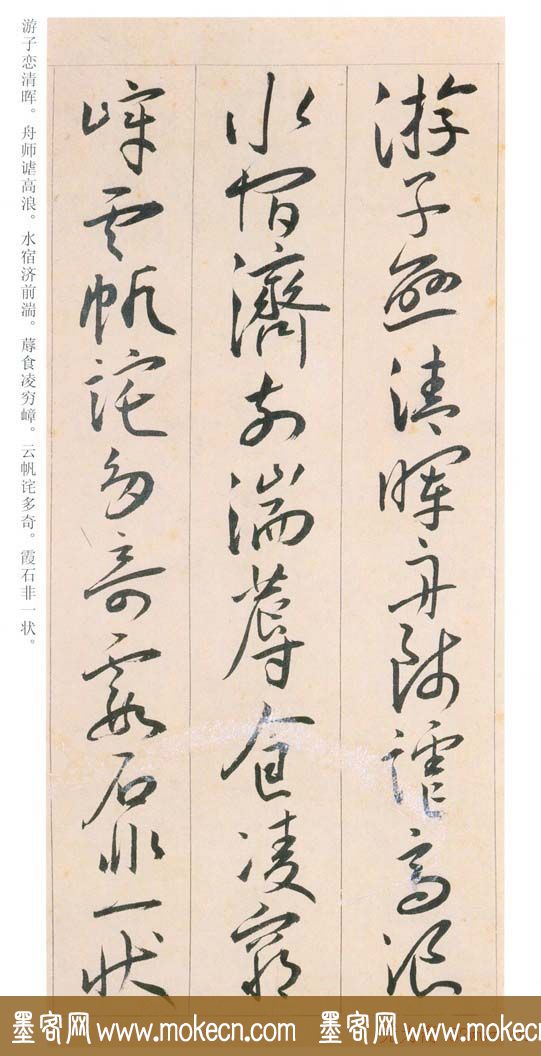 游子恋清晖。舟师谑高浪。水宿济前湍。蓐食凌穷嶂。云帆诧多奇。霞石非一状。
游子戀清暉舟師謔高浪
水宿濟前湍蓐食凌窮
嶂雲帆詫多奇霞石非一状
墨客网 www.mokecn.com 墨客网 www.mokecn.com